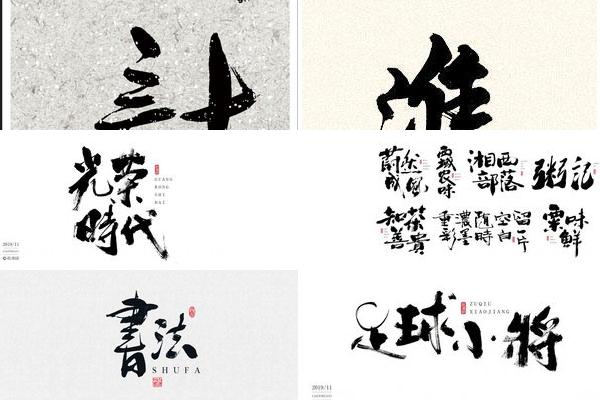 計
光荣
時代
GUANG
RONG
SHI
DAI
2019/11
蔚然
成風
湘西
部落
粥記
知茶
善貴
重濃隨空留
彩墨時白一片
粟味
鮮
書法
SHUFA
足球小將
ZUQIU
XIAOJIANG
2019/11